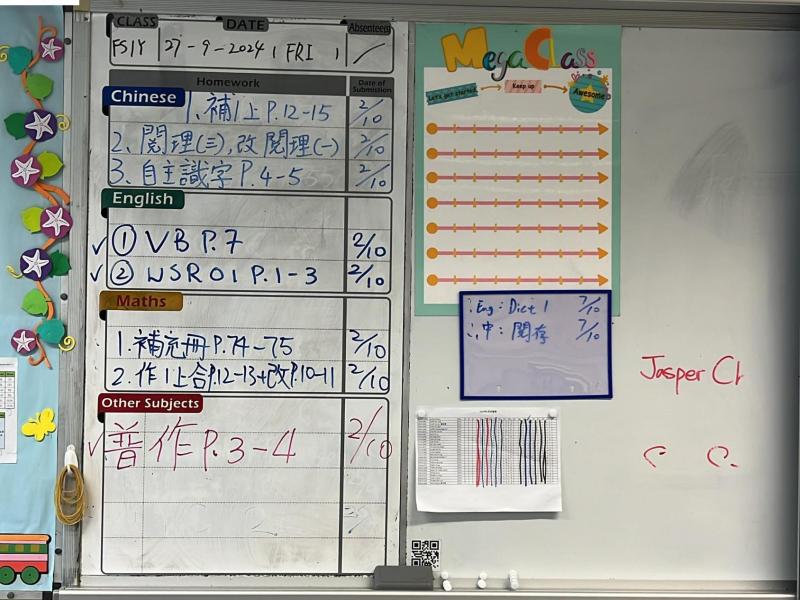 CLASS DATE Absenteen
27-9-2024, FRI
Homework Date of Submission
Chinese
1. 補1上 P.12-15 2/10
2. 閱理(三),改閱理(一) 2/10
3. 自主識字 P.4-5 2/10
English
✓ ① VB P.7 2/10
✓ ② WSR01 P.1-3 2/10
Maths
1. 補充冊P.74-75 2/10
2. 作1上合P.12-13+改P.10-11 2/10
Other Subjects
✓ 普作 P.3-4 2/10
MegaClass
Let's get started
Keep up
Awesome
Eng: Dict 1 7/10
中: 閱存 7/10
Jasper